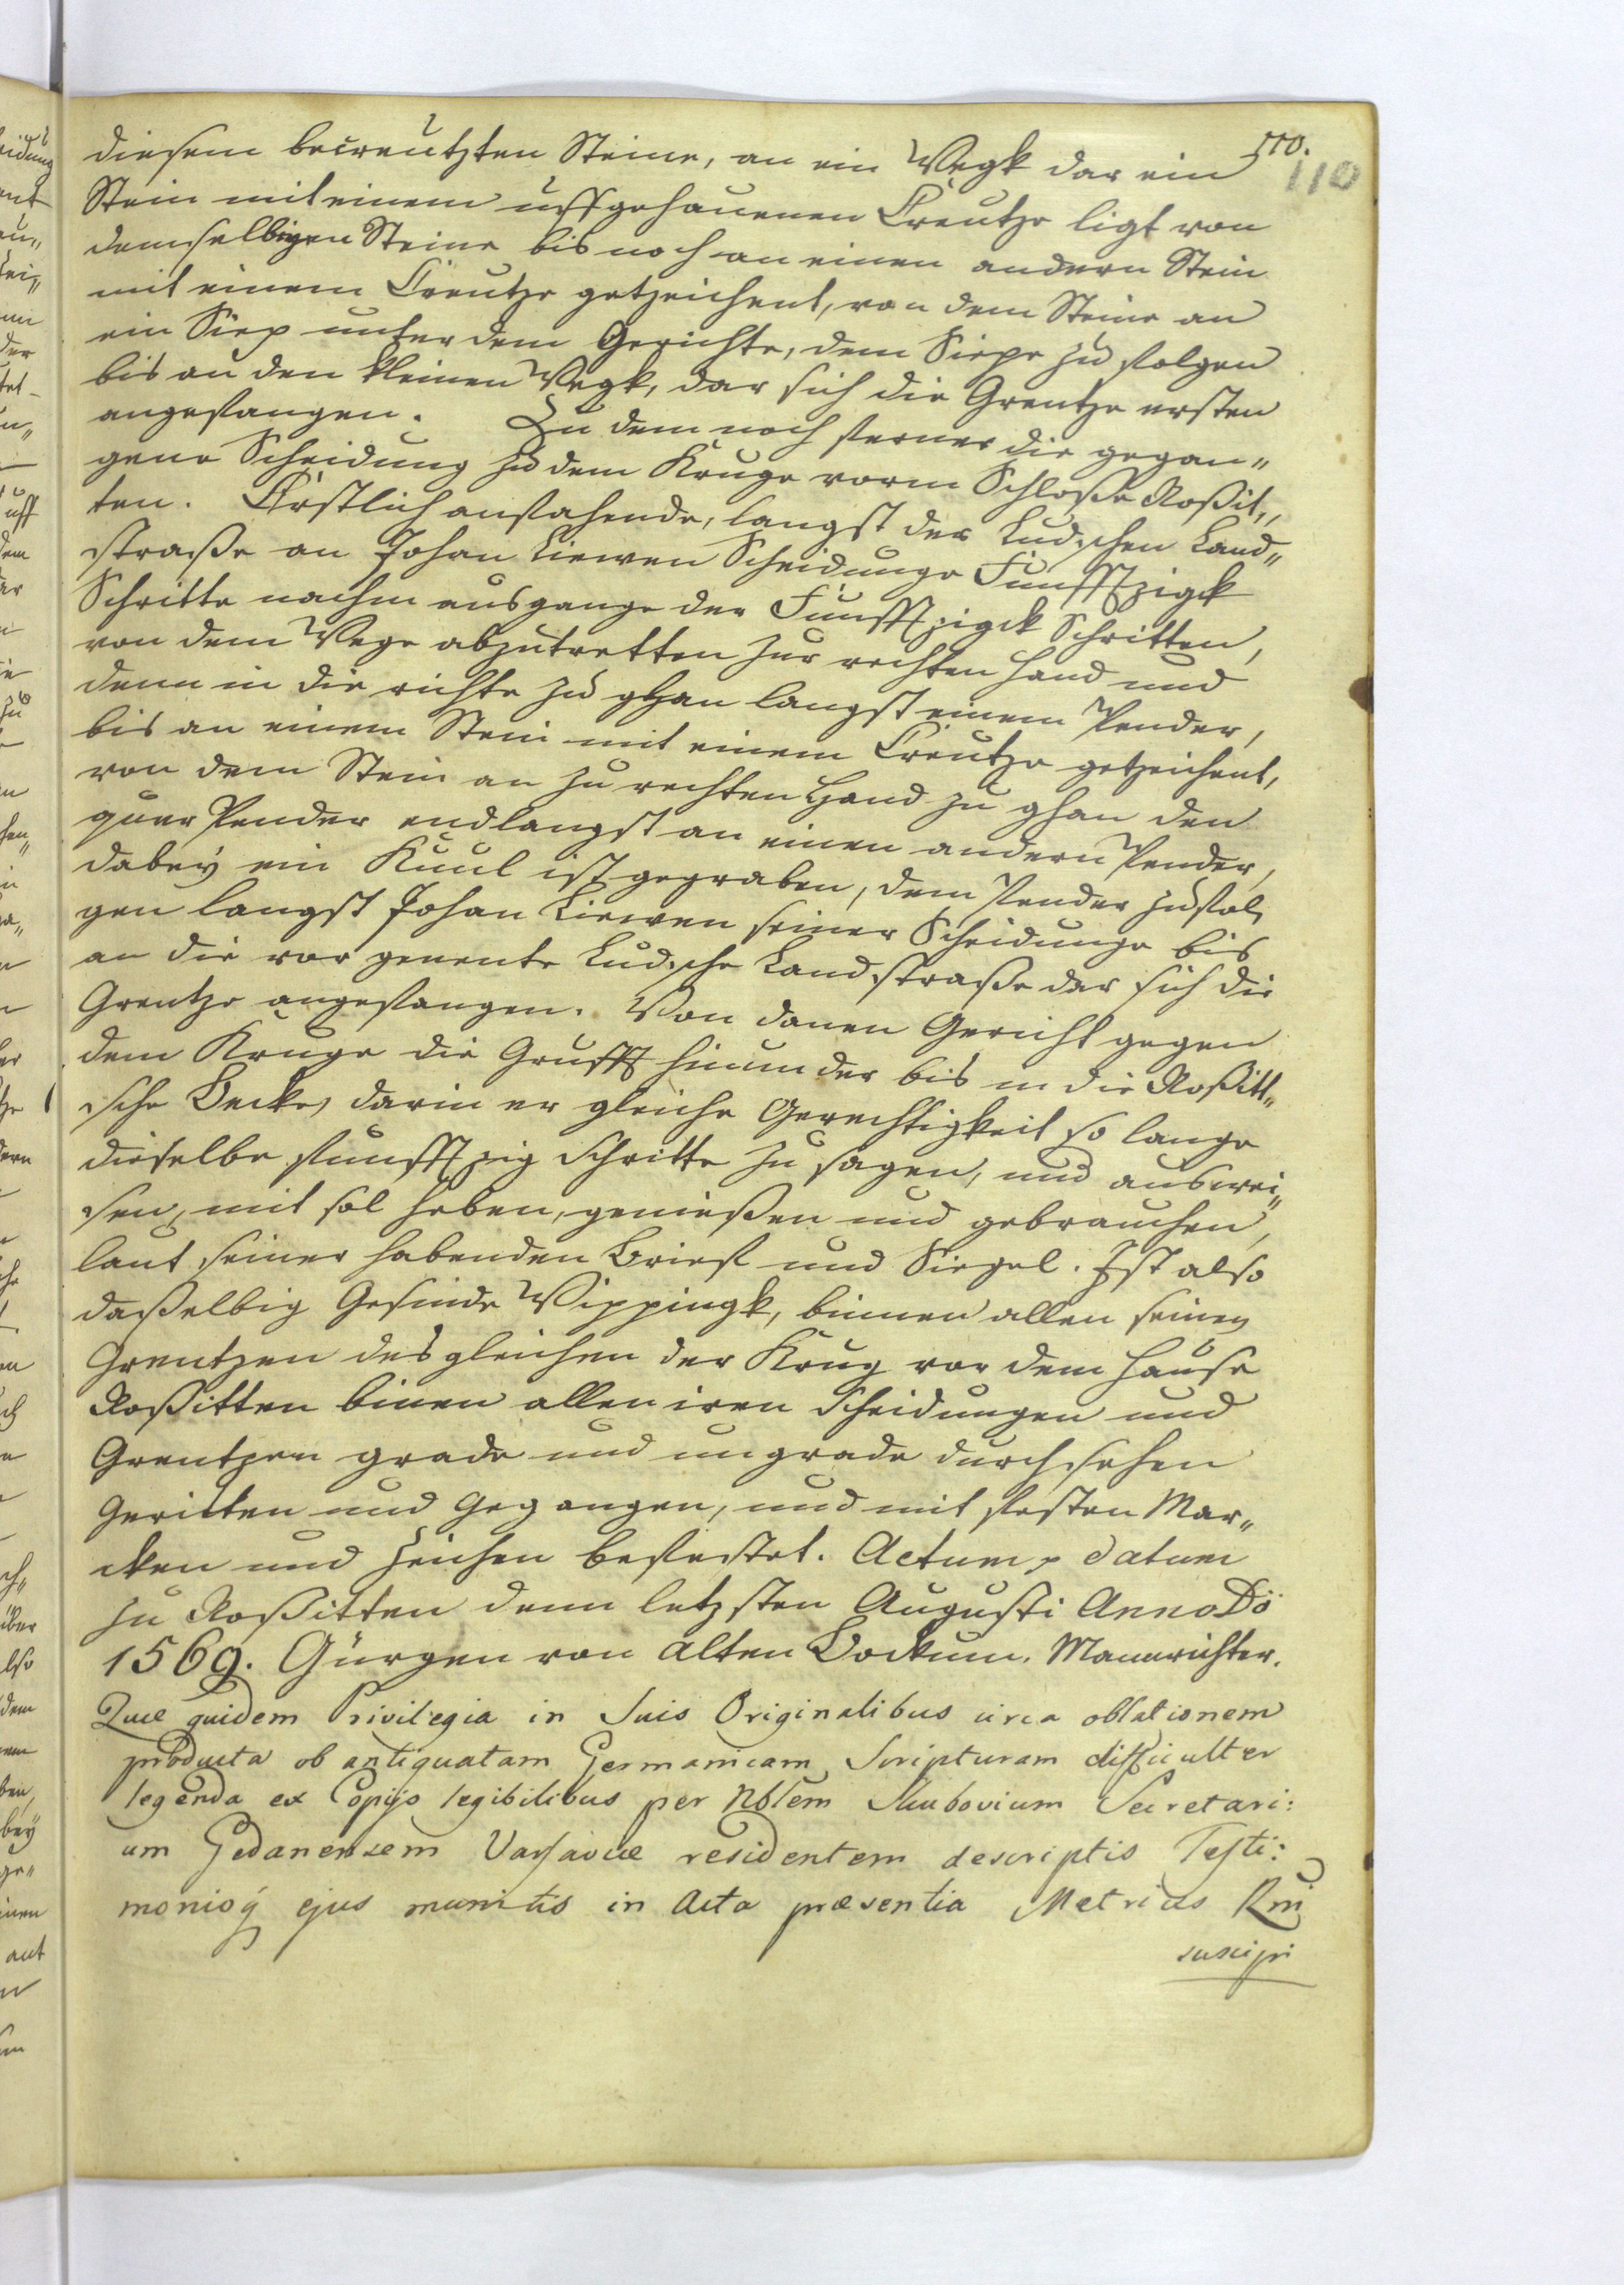 110.
110
diesem becreutzten Steine, an ein Wegk dar ein
Stein mit einem uffgehauenen Creutze ligt von
demselbigen Steine bis noch an einen andern Stein
mit einem Creutze getzeichent, von dem Steine an
ein Siep unter dem Gerichte, dem Siepe zu folgen
bis an den kleinen Wegk, dar sich die Grentze ersten
angefangen. Zu dem noch ferner die gegan„
gene Scheidung zu dem Kruge vorm Schloße Roßit„
ten. Erstlich anfahende, langst der Ludschen Land„
straße an Johan Liewen Scheidunge Funfftzigk
Schritte nachm ausgange der Funfftzigck Schritten,
von dem Wege abzutretten zur rechten Hand und
denn in die richte zu ghan langst einem Pender,
bis an einem Stein mit einem Creutze getzeichent,
von dem Stein an zu rechten Hand zu ghan den
quer Pender endlangst an einen andern Pender,
dabey ein Kuul ist gegraben, dem Pender zu fol„
gen langst Johan Liewen seiner Scheidunge bis
an die vor genente Ludsche Landstraße dar sich die
Grentze angefangen. Von danen Gericht gegen
dem Kruge die Grufft hinunder bis in die Roßitt„
sche Becke, darin er gleiche Gerechtigkeit so lange
dieselbe funfftzig Schritte zu sagen, und auswei„
sen, mit sol heben, genießen und gebrauchen,
laut seiner habenden Brief und Siegel. Ist also
daßelbig Gesinde Wippingk, binnen allen seinen
Grentzen desgleichen der Krug vor dem Hause
Roßitten binen allen iren Scheidungen und
Grentzen grade und ungrade durchsehen
Geritten und Gegangen, und mit festen Mar„
cken und Zeichen befestet. Actum datum
zu Roßitten denn letzsten Augusti Anno Dō
1569. Gürgen von Alten Bockum. Mannrichter.
Quæ quidem Privilegia in suis Originalibus circa oblationem
producta ob antiquatam Germanicam Scripturam difficulter
legenda ex Copijs legibilibus per Nblem Secretari:
um Gedanensem Varsaviæ residentem descriptis Testi:
monioq́ ejus munitis in Acta præsentia Metrices Rni
suscipi